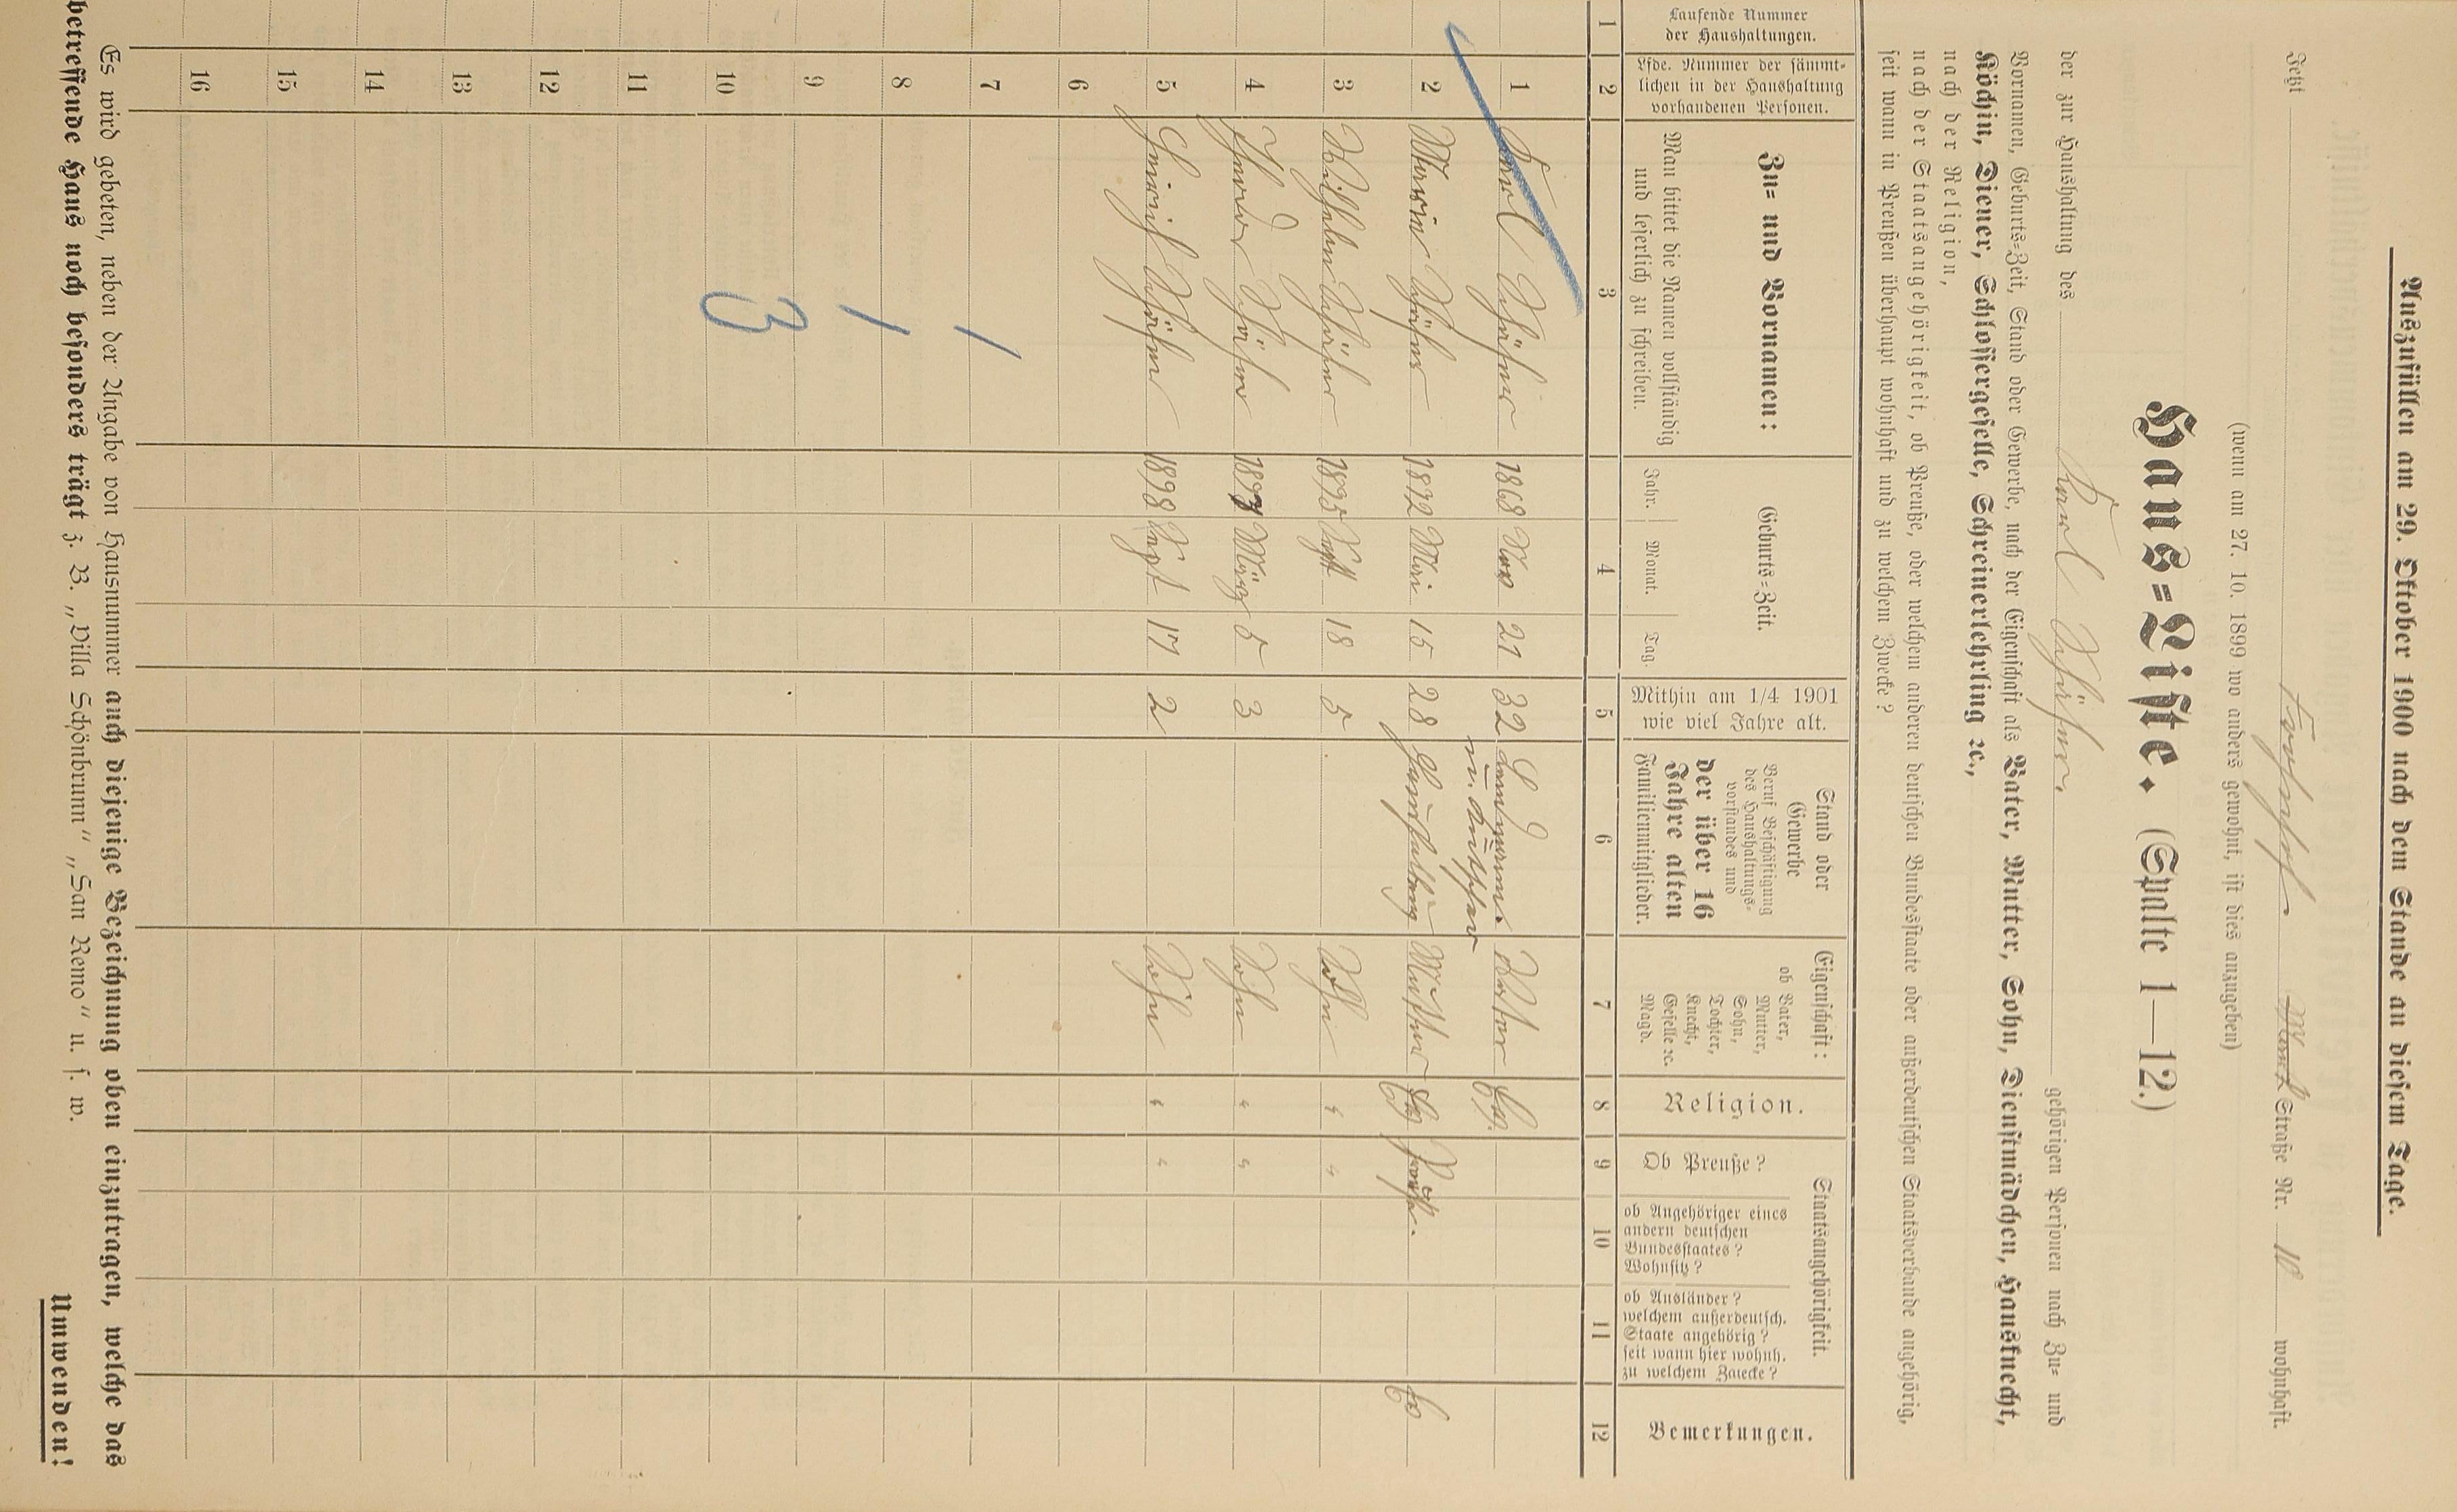 Auszufüllen am 29. Oktober 1900 nach dem Stande an diesem Tage.
Jetzt Straße Nr. 10 wohnhaft.
(wenn am 27. 10. 1899 wo anders gewohnt, ist dies anzugeben)
Haus=Liste. (Spalte 1—12.)
der zur Haushaltung des Karl Schäfer gehörigen Personen nach Zu= und
Vornamen, Geburts=Zeit, Stand oder Gewerbe, nach der Eigenschaft als Vater, Mutter, Sohn, Dienstmädchen, Hausknecht,
Köchin, Diener, Schlossergeselle, Schreinerlehrling ꝛc.,
nach der Religion,
nach der Staatsangehörigkeit, ob Preuße, oder welchem anderen deutschen Bundesstaate oder außerdeutschen Staatsverbande angehörig,
seit wann in Preußen überhaupt wohnhaft und zu welchem Zwecke?
Laufende Nummer
der Haushaltungen.
Lfde. Nummer der sämmt=
lichen in der Haushaltung
vorhandenen Personen.
Zu= und Vornamen:
Man bittet die Namen vollständig
und leserlich zu schreiben.
Geburts=Zeit.
Jahr. Monat. Tag.
Mithin am 1/4 1901
wie viel Jahre alt.
Stand oder
Gewerbe
Beruf Beschäftigung
des Haushaltungs=
vorstandes und
der über 16
Jahre alten
Familienmitglieder.
Eigenschaft:
ob Vater,
Mutter,
Sohn,
Tochter,
Knecht,
Geselle ꝛc.
Magd.
Religion.
Staatsangehörigkeit.
Ob Preuße?
ob Angehöriger eines
andern deutschen
Bundesstaates?
Wohnsitz?
ob Ausländer?
welchem außerdeutsch.
Staate angehörig?
seit wann hier wohnh.
zu welchem Zwecke?
Bemerkungen.
1 2 3 4 5 6 7 8 9 10 11 12
1 Karl Schäfer 1868 Nov 21 32 Vater Ev.
u. Kutscher
2 Schäfer 1872 Mai 15 28 Haushaltung Mutter Ev Preuße.
3 Wilhelm Schäfer 1895 18 5 Sohn " "
4 Schäfer März 5 3 Sohn " "
5 Heinrich Schäfer 1898 Sept 17 2 Sohn " "
6
7 1
8 1
9
10 3
11
12
13
14
15
16
Es wird gebeten, neben der Angabe von Hausnummer auch diejenige Bezeichnung oben einzutragen, welche das
betreffende Haus noch besonders trägt z. B. „Villa Schönbrunn" „San Remo" u. s. w.
Umwenden!